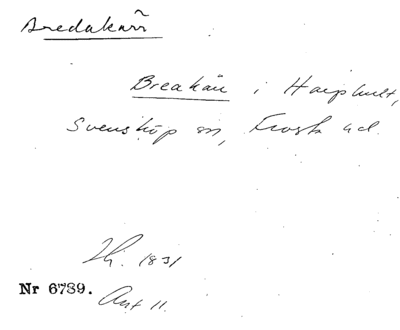 Bredakärr
Breakärr i Harphult,
Svensköp sn, Frosta hd.
Lh. 1831
Nr 6789.
Akt 11.